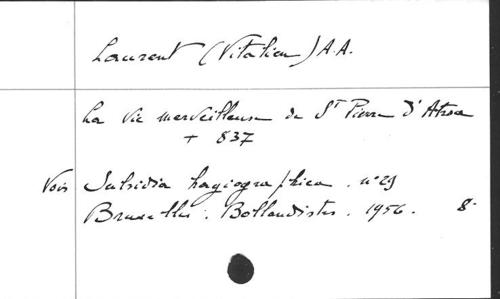 Laurent (Vitalien) A.A.
La Vie merveilleuse de St Pierre d'Atroa
+ 837
Voir Subsidia hagiographica. n° 29
Bruxelles. Bollandistes. 1956. 8°